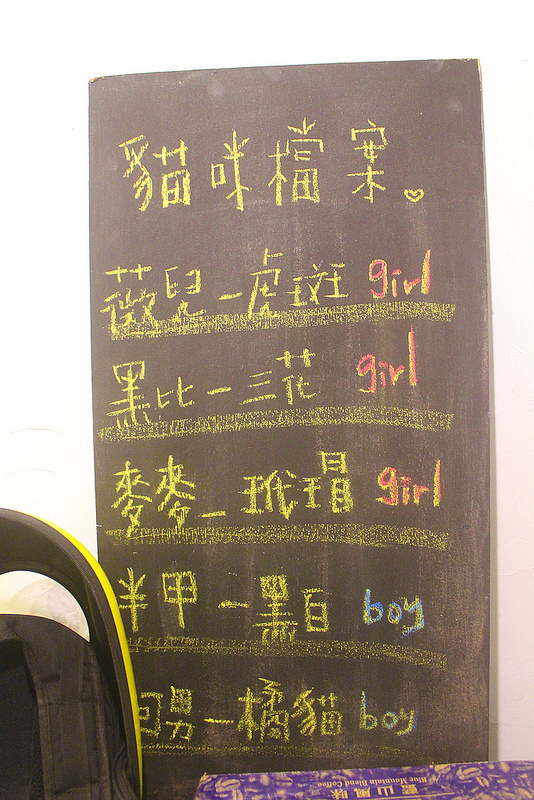 貓咪檔案
薇兒-虎斑 girl
黑比-三花 girl
麥麥-玳瑁 girl
半甲-黑白 boy
男-橘貓 boy
藍山風味
Blue Mountain Blend Coffee